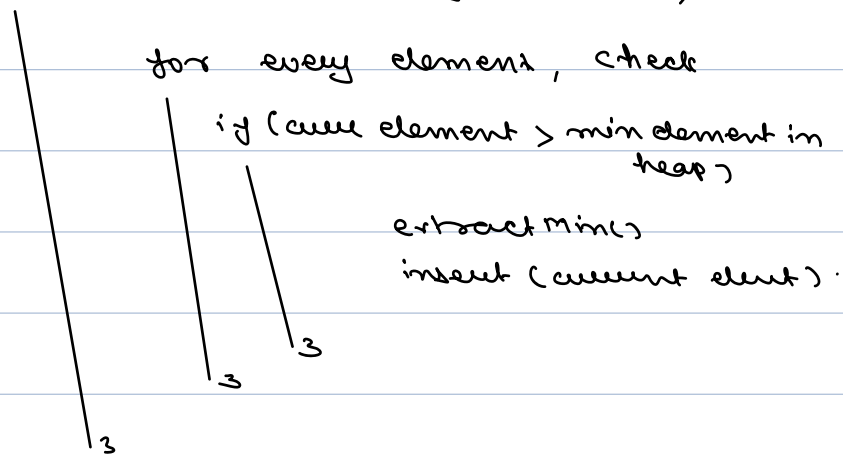 for every element, check
if (curr element > min element in
heap)
extractMin()
insert (current elent).
}
}
}